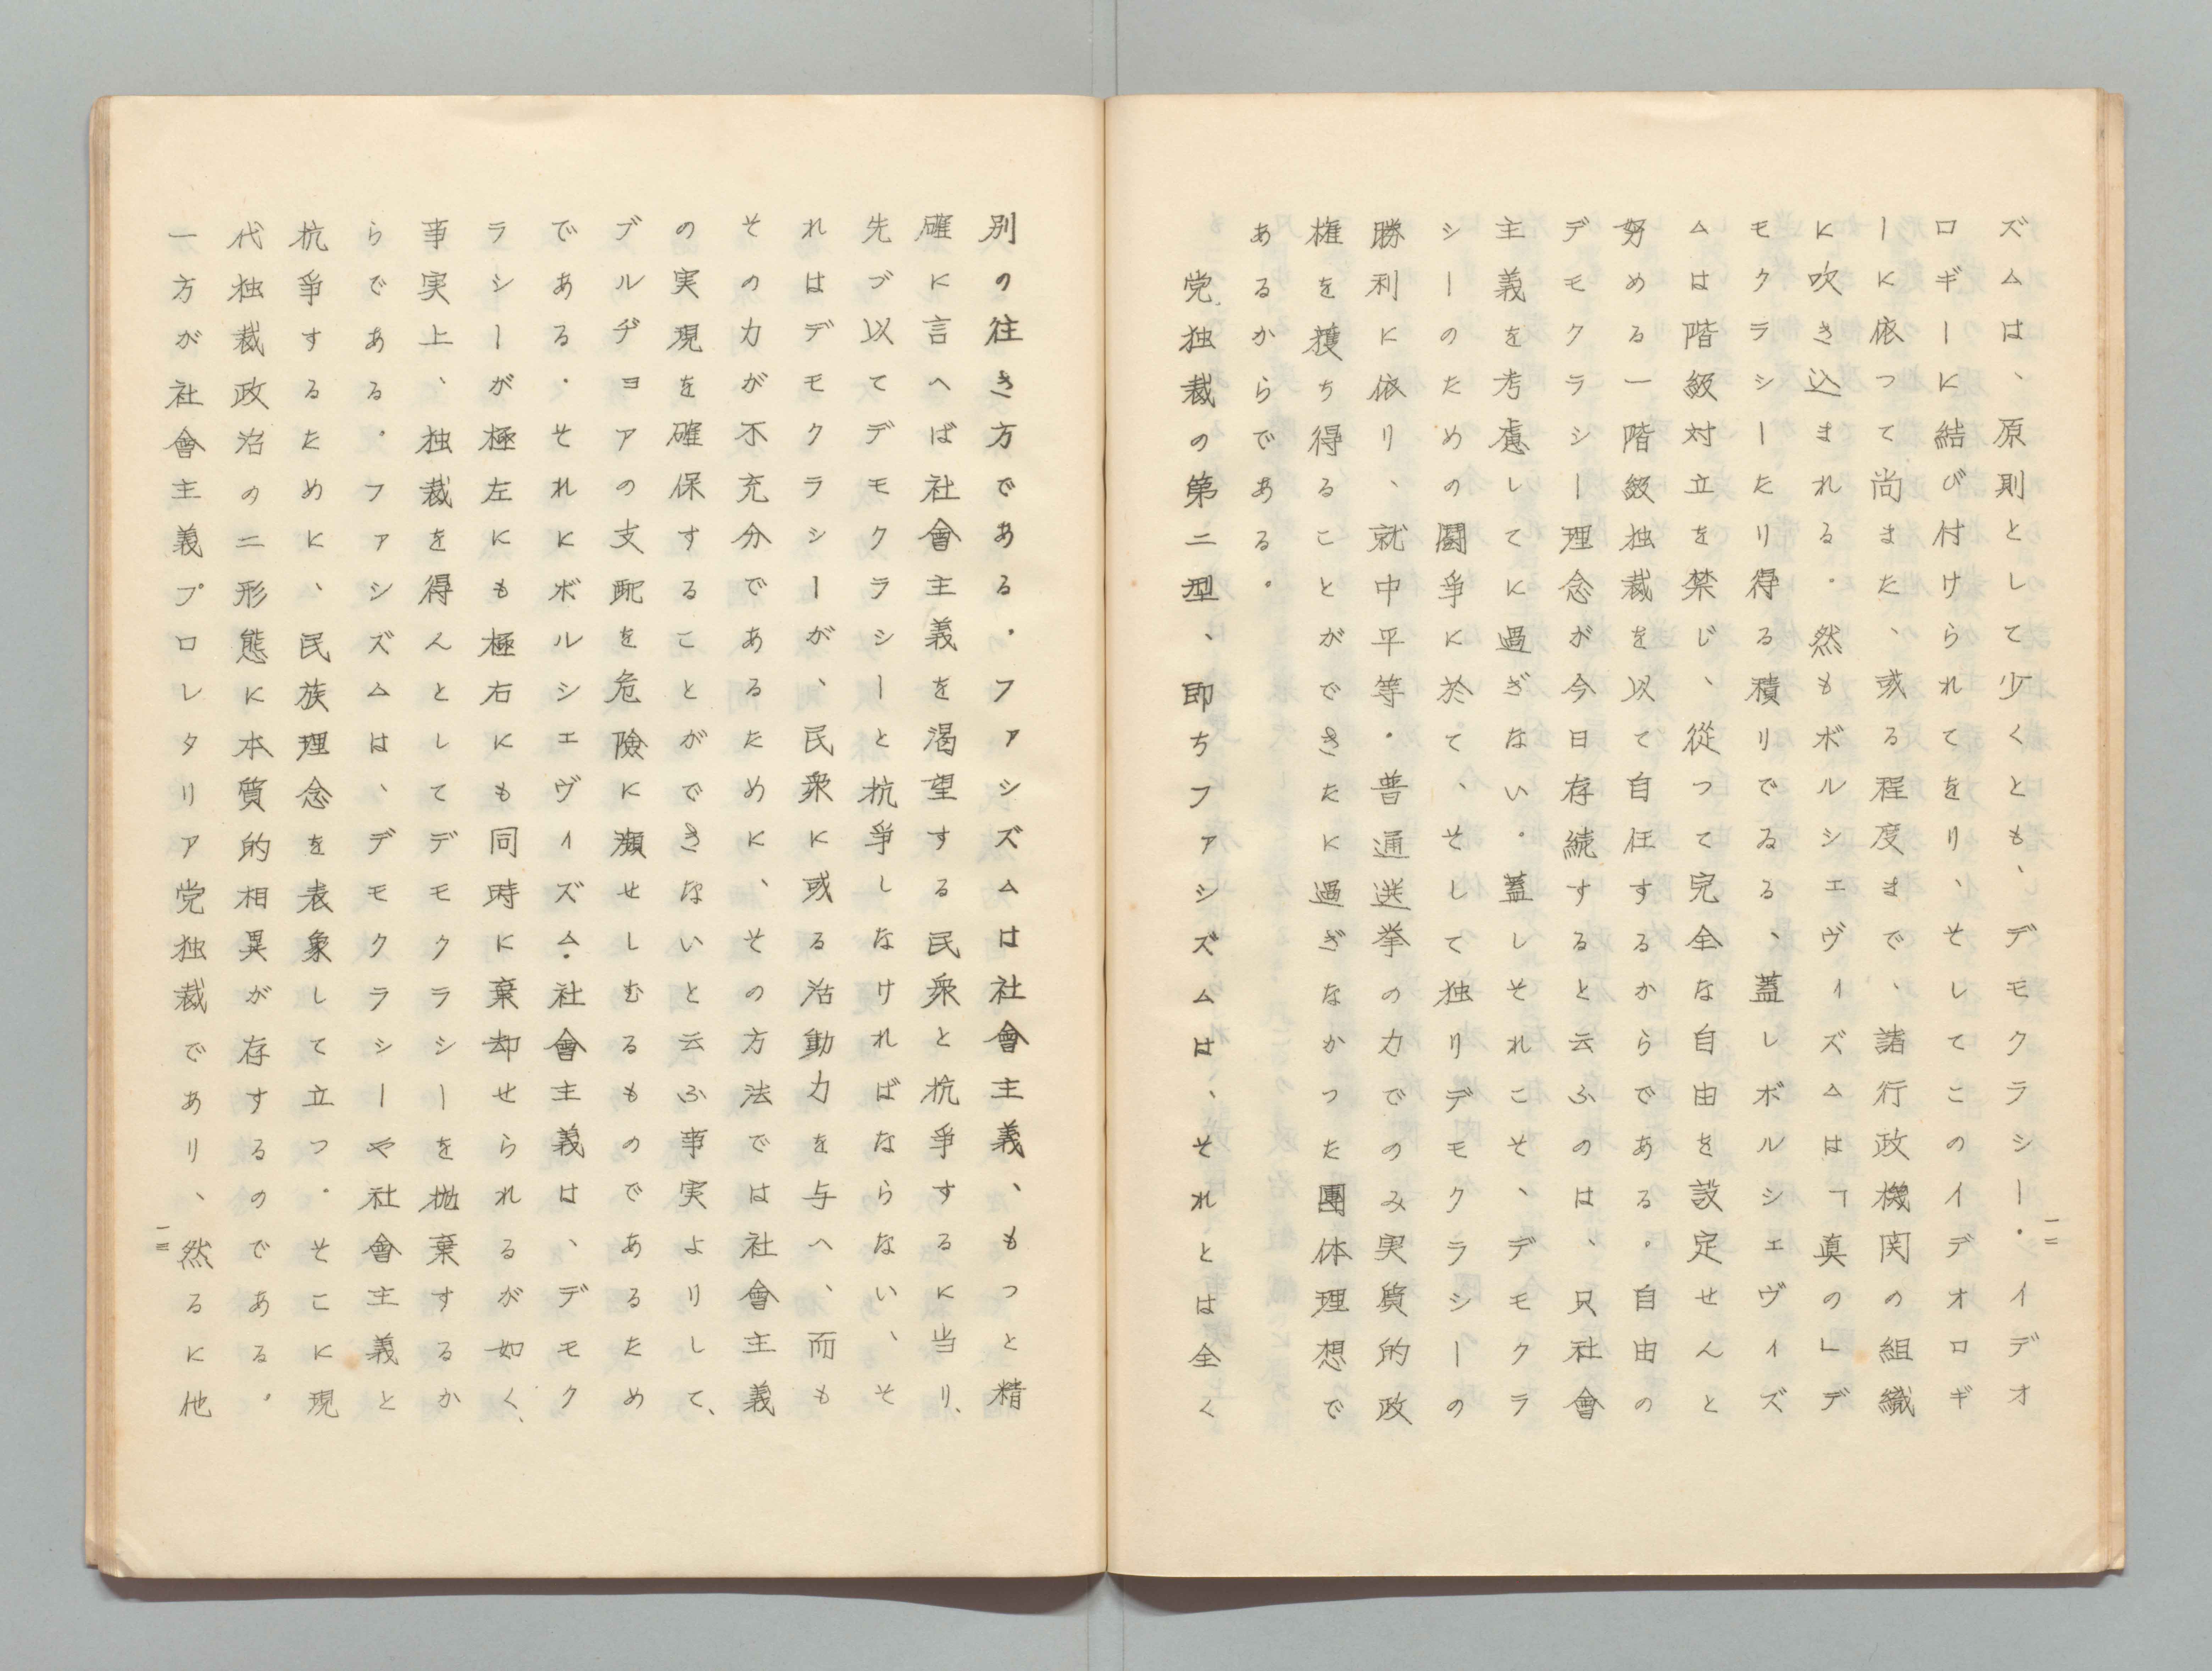 ズムは、原則として少くとも、デモクラシー・イデオ
ロギーに結び付けられてをり、そしてこのイデオロギ
ーに依つて尚また、或る程度まで、諸行政機関の組織
に吹き込まれる。然もボルシエヴイズムは「真の」デ
モクラシーたり得る積りでゐる、蓋しボルシエヴイズ
ムは階級対立を禁じ、從つて完全な自由を設定せんと
努める一階級独裁を以て自任するからである。自由の
デモクラシー理念が今日存続すると云ふのは、只社會
主義を考慮してに過ぎない。蓋しそれこそ、デモクラ
シーのための闘爭に於て、そして独リデモクラシーの
勝利に依リ、就中平等・普通選挙の力でのみ実質的政
権を獲ち得ることができたに過ぎなかつた團体理想で
あるからである。
党独裁の第二型、即ちファシズムは、それとは全く
一二
別の往き方である。ファシズムは社會主義、もつと精
確に言へば社會主義を渇望する民衆と抗爭するに当り、
先づ以てデモクラシーと抗爭しなければならない、そ
れはデモクラシーが、民衆に或る活動力を与へ、而も
その力が不充分であるために、その方法では社會主義
の実現を確保することができないと云ふ事実よりして、
ブルヂヨアの支配を危險に瀕せしむるものであるため
である。それにボルシエヴイズム・社會主義は、デモク
ラシーが極左にも極右にも同時に棄却せられるが如く、
事実上、独裁を得んとしてデモクラシーを抛棄するか
らである。ファシズムは、デモクラシーや社會主義と
抗爭するために、民族理念を表象して立つ。そこに現
代独裁政治の二形態に本質的相異が存するのである。
一方が社會主義プロレタリア党独裁であり、然るに他
一三